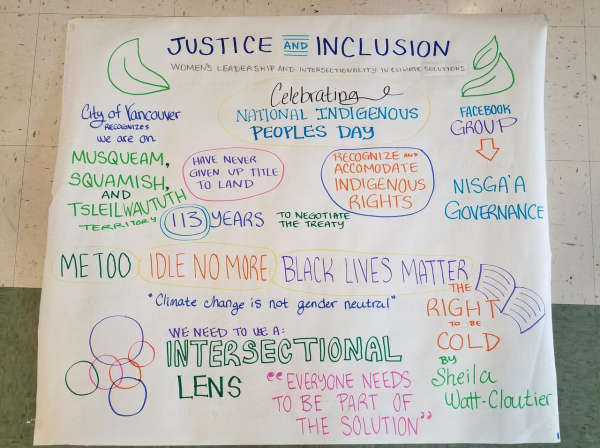 JUSTICE AND INCLUSION
WOMEN'S LEADERSHIP AND INTERSECTIONALITY IN CLIMATE SOLUTIONS
Celebrating
NATIONAL INDIGENOUS
PEOPLES DAY
City of Vancouver
RECOGNIZES
we are on
MUSQUEAM,
SQUAMISH,
AND
TSLEILWAUTUTH
TERRITORY
HAVE NEVER
GIVEN UP TITLE
TO LAND
RECOGNIZE AND
ACCOMODATE
INDIGENOUS
RIGHTS
FACEBOOK
GROUP
NISGA'A
GOVERNANCE
113 YEARS
TO NEGOTIATE
THE TREATY
ME TOO
IDLE NO MORE
BLACK LIVES MATTER
"Climate change is not gender neutral"
THE
RIGHT
TO BE
COLD
BY
Sheila
Watt-Cloutier
WE NEED TO USE A:
INTERSECTIONAL
LENS
"EVERYONE NEEDS
TO BE PART OF
THE SOLUTION"